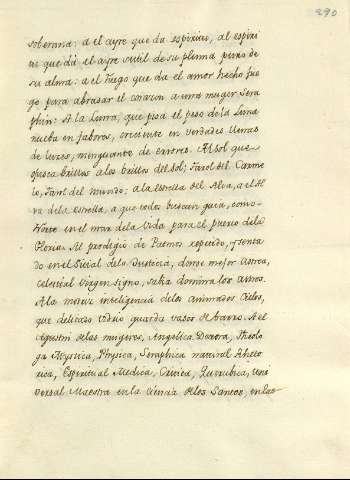 290
soberana: a el ayre que da espiritu, al espiri
tu que dá el ayre sutil de su pluma pura de
su alma: a el fuego que da el amor hecho fue
go para abrasar el corazon a una muger Sera
phin: A la Luna, que pisa el peso de la Luna
nueba en fabores, creciente en verdades llenas
de luzes, menguante de errores. Al sol que
ofusca brillos a los brillos del Sol; Farol del Carme
lo, Farol del mundo: a la estrella del Alva, a el A
va de la estrella, a que todos buscan guia, como
Norte en el mar de la vida para el puerto de la
Gloria. Al prodigio de Patmos repetido, y senta
do en el Sitial de la Justicia, donde mejor Astrea,
celestial Virgen Signo, sabia domina los astros.
A la motriz inteligencia de los animados Cielos,
que delicado vidrio guarda vasos de barro. A el
Agustin de las mugeres, Angelica Doctora, Theolo
ga Mystica, Physica, Seraphica natural Rheto
rica, Espiritual Medica, Civica, Querubica, Uni
versal Maestra en la ciencia de los Santos, en las